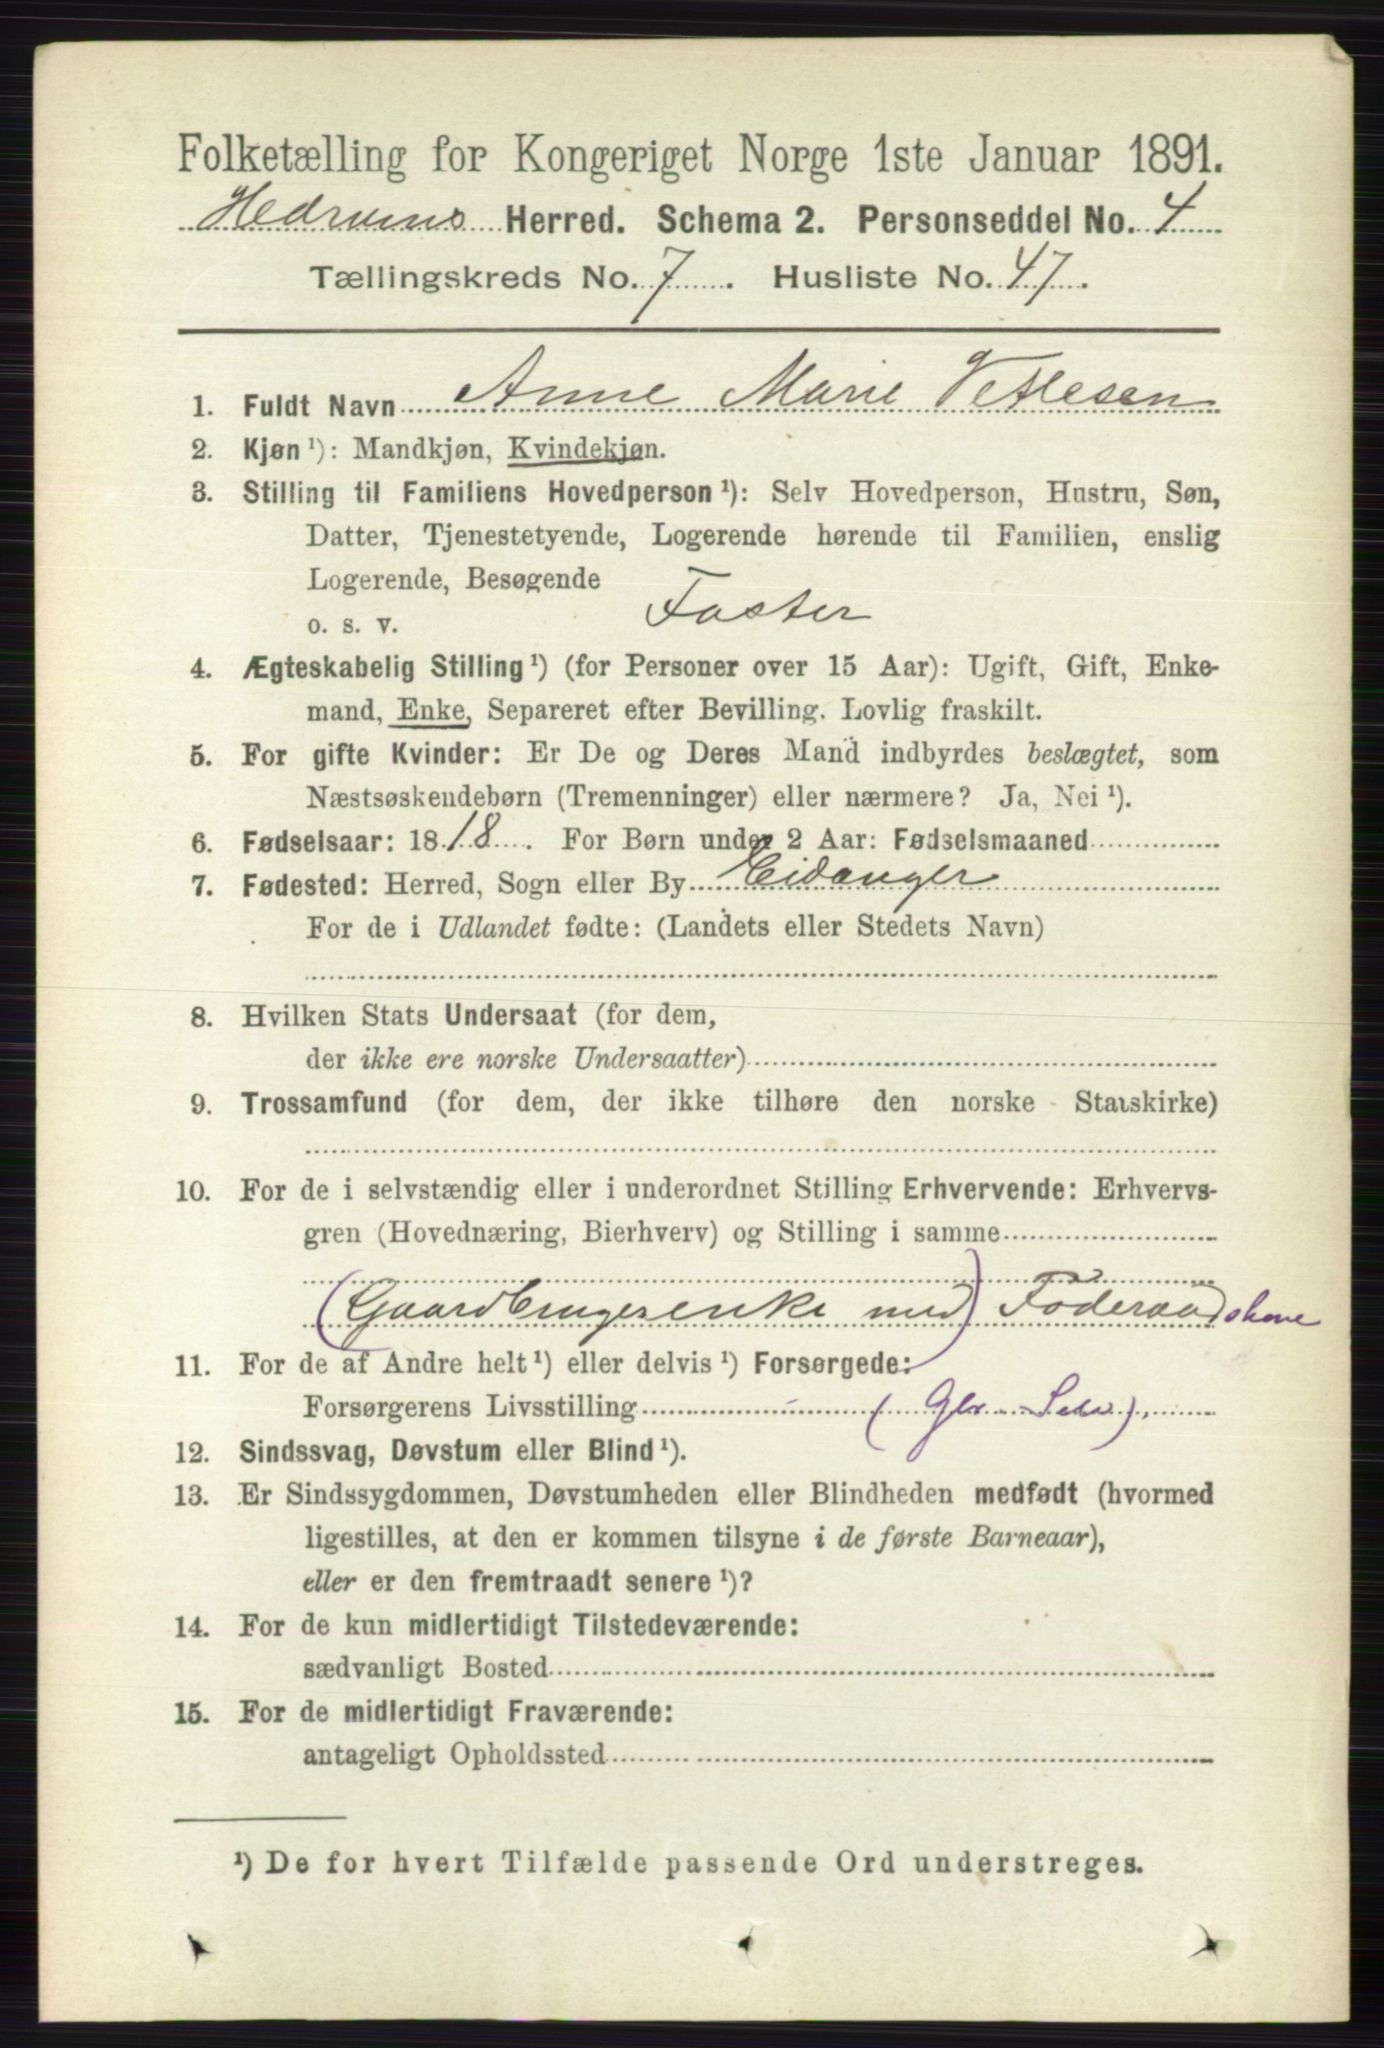 Folketælling for Kongeriget Norge 1ste Januar 1891.
Hedrums Herred. Schema 2. Personseddel No. 4
Tællingskreds No. 7. Husliste No. 47.
1. Fuldt Navn Anne Marie Vetlesen
2. Kjøn ¹): Mandkjøn, Kvindekjøn.
3. Stilling til Familiens Hovedperson ¹): Selv Hovedperson, Hustru, Søn,
Datter, Tjenestetyende, Logerende hørende til Familien, enslig
Logerende, Besøgende
o. s. v. Faster
4. Ægteskabelig Stilling ¹) (for Personer over 15 Aar): Ugift, Gift, Enke-
mand, Enke, Separeret efter Bevilling. Lovlig fraskilt.
5. For gifte Kvinder: Er De og Deres Mand indbyrdes beslægtet, som
Næstsøskendebørn (Tremenninger) eller nærmere? Ja, Nei ¹).
6. Fødselsaar: 1818. For Børn under 2 Aar: Fødselsmaaned
7. Fødested: Herred, Sogn eller By Eidanger
For de i Udlandet fødte: (Landets eller Stedets Navn)
8. Hvilken Stats Undersaat (for dem,
der ikke ere norske Undersaatter)
9. Trossamfund (for dem, der ikke tilhøre den norske Statskirke)
10. For de i selvstændig eller i underordnet Stilling Erhvervende: Erhvervs-
gren (Hovednæring, Bierhverv) og Stilling i samme
(Gaardbrugerenke med) Föderaadskone
11. For de af Andre helt ¹) eller delvis ¹) Forsørgede:
Forsørgerens Livsstilling (Gbr. Selv),
12. Sindssvag, Døvstum eller Blind ¹).
13. Er Sindssygdommen, Døvstumheden eller Blindheden medfødt (hvormed
ligestilles, at den er kommen tilsyne i de første Barneaar),
eller er den fremtraadt senere ¹)?
14. For de kun midlertidigt Tilstedeværende:
sædvanligt Bosted
15. For de midlertidigt Fraværende:
antageligt Opholdssted
¹) De for hvert Tilfælde passende Ord understreges.